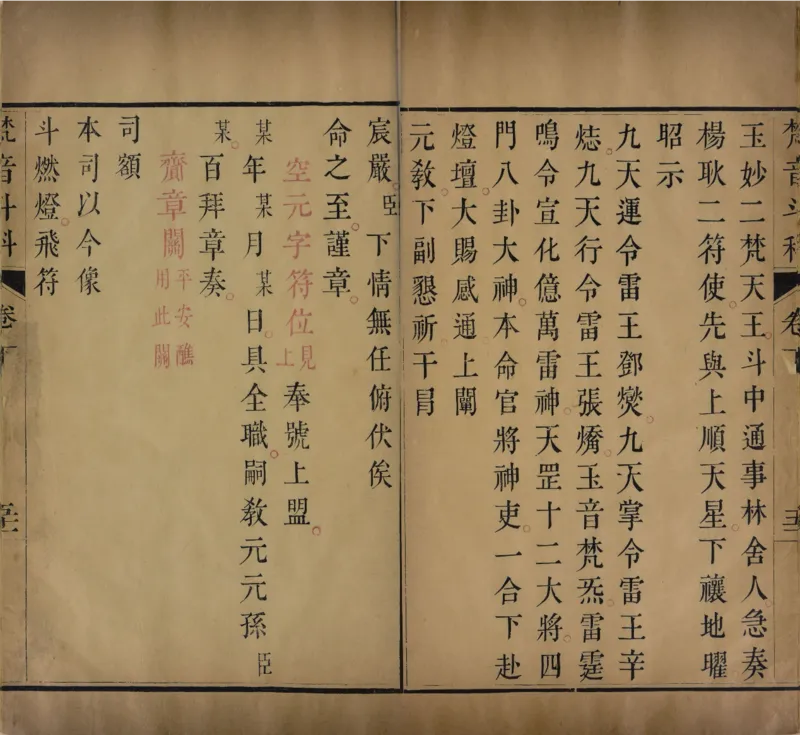 梵音斗科 卷下
玉妙二梵天王斗中通事林舍人急奏
楊耿二符使先與上順天星下禳地曜
昭示
九天運令雷王鄧燮九天掌令雷王辛
九天行令雷王張燏玉音梵炁雷霆
鳴令宣化億萬雷神天罡十二大將四
門八卦大神本命官將神吏一合下赴
燈壇大賜感通上闡
元敎下副懇祈干冐
宸嚴臣下情無任俯伏俟
命之至謹章
空元字符位見上奉號上盟
某年某月某日具全職嗣敎元元孫臣
某百拜章奏
齋章關平安醮用此關
司額
本司以今像
斗燃燈飛符
梵音斗科 卷下